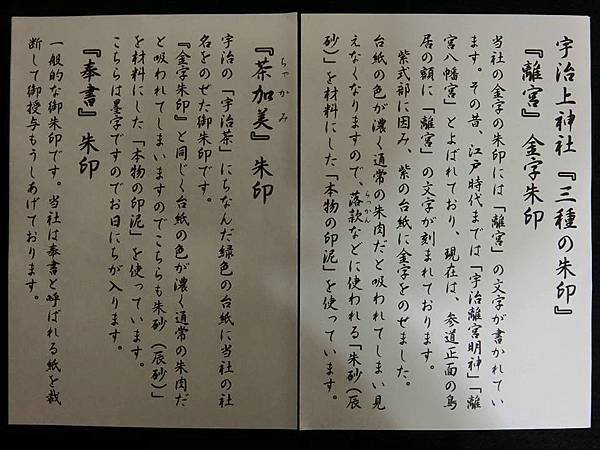 宇治上神社『三種の朱印』
『離宮』金字朱印
当社の金字の朱印には「離宮」の文字が書かれてい
ます。その昔、江戸時代までは「宇治離宮明神」「離
宮八幡宮」とよばれており、現在は、参道正面の鳥
居の額に「離宮」の文字が刻まれております。
紫式部に因み、紫の台紙に金字をのせました。
台紙の色が濃く通常の朱肉だと吸われてしまい見
えなくなりますので、落款などに使われる「朱砂(辰
らっかん
砂)」を材料にした「本物の印泥」を使っています。
『茶加美』朱印
ちゃかみ
宇治の「宇治茶」にちなんだ緑色の台紙に当社の社
名をのせた御朱印です。
『金字朱印』と同じく台紙の色が濃く通常の朱肉だ
と吸われてしまいますのでこちらも朱砂(辰砂)」
を材料にした「本物の印泥」を使っています。
こちらは墨字ですのでお日にちが入ります。
『奉書』朱印
一般的な御朱印です。当社は奉書と呼ばれる紙を裁
断して御授与もうしあげております。